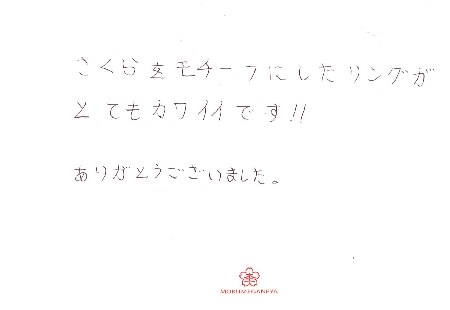 さくらをモチーフにしたリングが
とてもカワイイです!!
ありがとうございました。
MOKUMEGANEYA